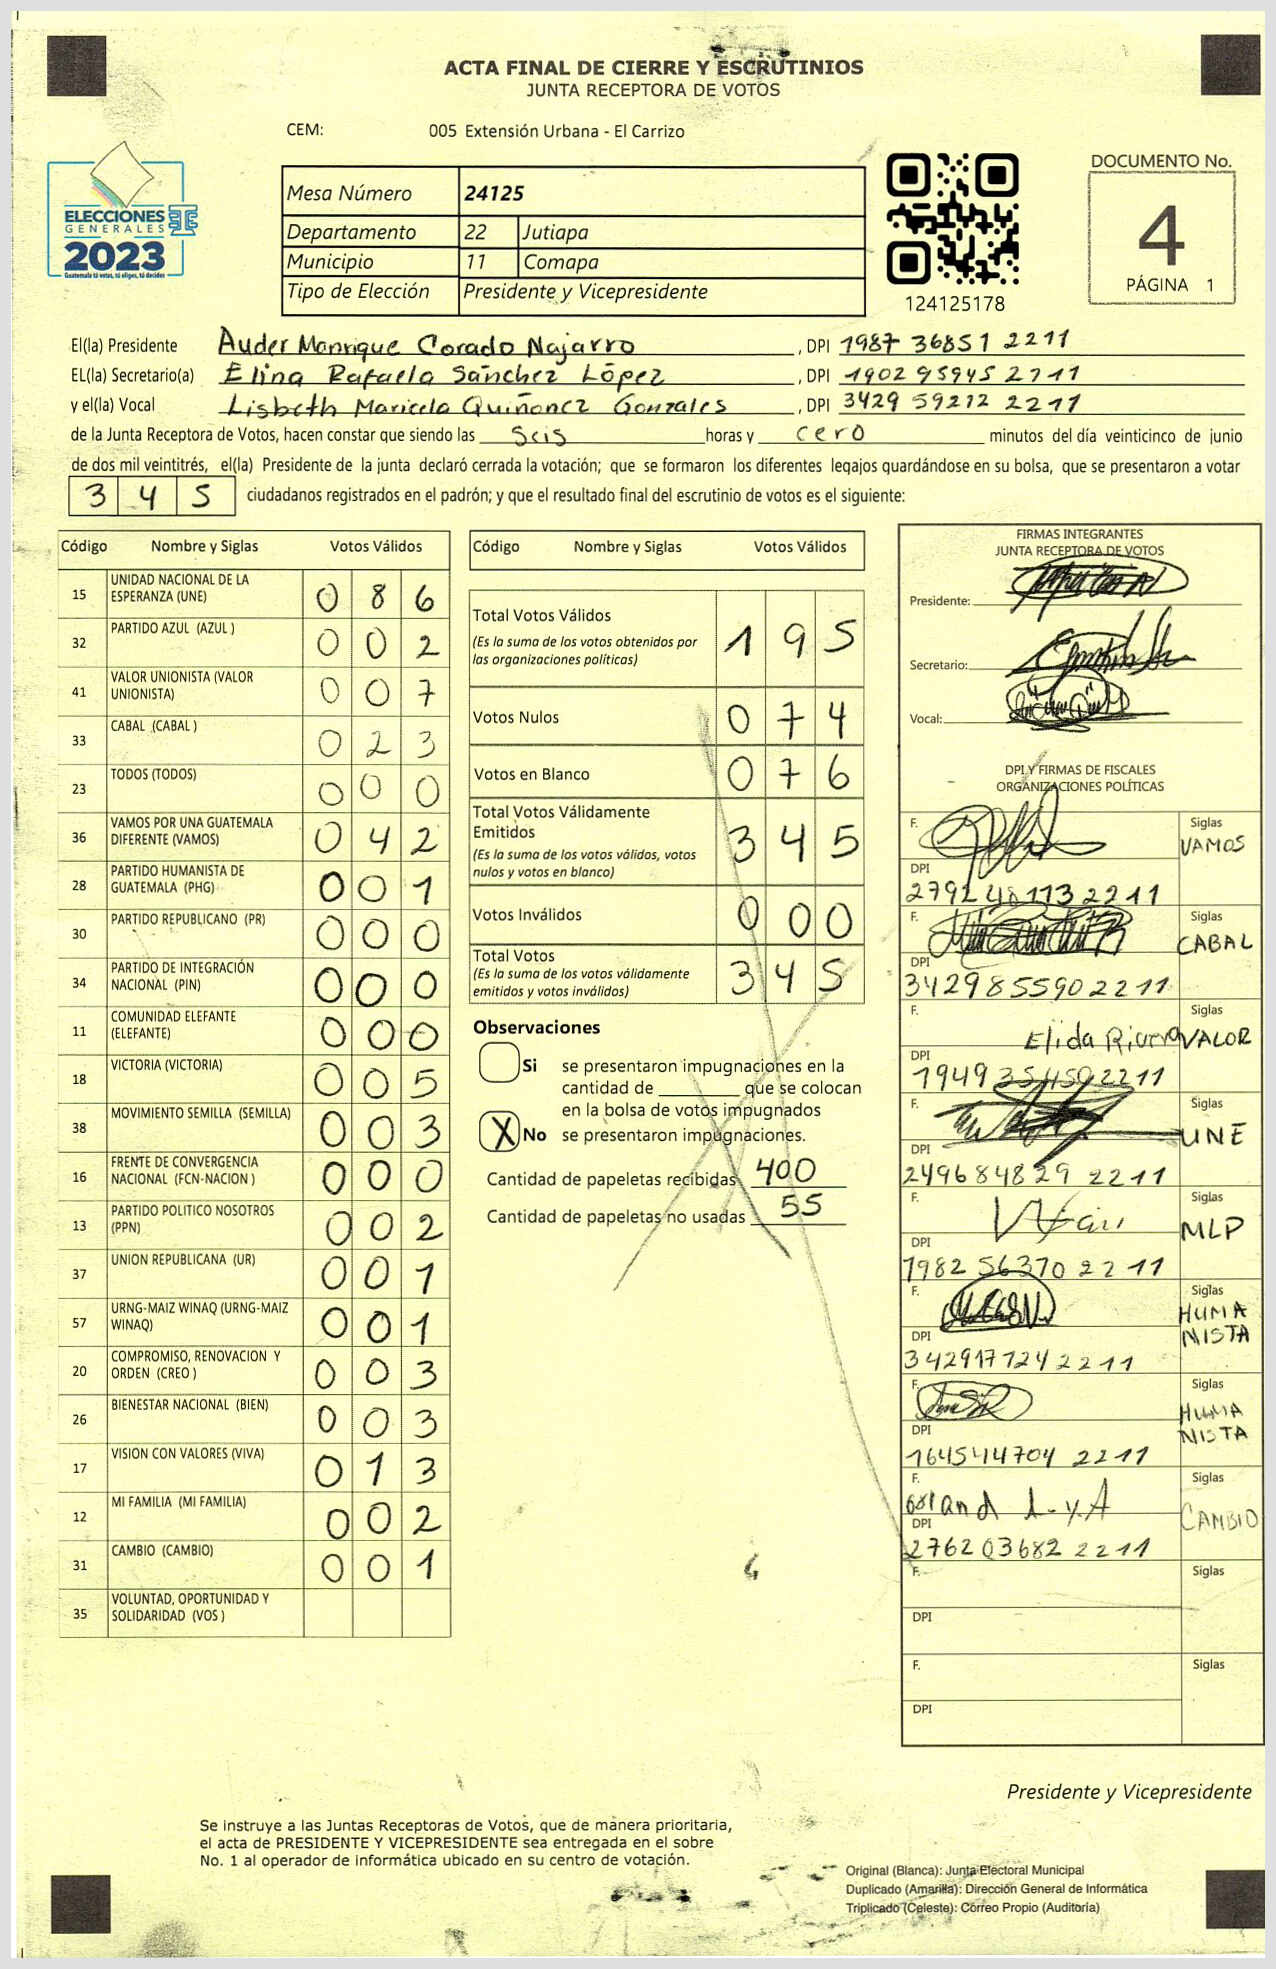 ACTA FINAL DE CIERRE Y ESCRUTINIOS
JUNTA RECEPTORA DE VOTOS
CEM: 005 Extensión Urbana - El Carrizo
ELECCIONES
GENERALES
2023
Guatemala tú votas, tú eliges, tú decides
Mesa Número 24125
Departamento 22 Jutiapa
Municipio 11 Comapa
Tipo de Elección Presidente y Vicepresidente
124125178
DOCUMENTO No.
4
PÁGINA 1
El(la) Presidente Auder Manrique Corado Najarro, DPI 1987 36851 2211
EL(la) Secretario(a) Elina Rafaela Sánchez López, DPI 1902 95945 2211
y el(la) Vocal Lisbeth Maricela Quiñonez Gonzales, DPI 3429 59212 2211
de la Junta Receptora de Votos, hacen constar que siendo las Seis horas y cero minutos del día veinticinco de junio
de dos mil veintitrés, el(la) Presidente de la junta declaró cerrada la votación; que se formaron los diferentes legajos guardándose en su bolsa, que se presentaron a votar
3 4 5 ciudadanos registrados en el padrón; y que el resultado final del escrutinio de votos es el siguiente:
Código Nombre y Siglas Votos Válidos
15 UNIDAD NACIONAL DE LA
ESPERANZA (UNE) 0 8 6
32 PARTIDO AZUL (AZUL ) 0 0 2
41 VALOR UNIONISTA (VALOR
UNIONISTA) 0 0 7
33 CABAL (CABAL ) 0 2 3
23 TODOS (TODOS) 0 0 0
36 VAMOS POR UNA GUATEMALA
DIFERENTE (VAMOS) 0 4 2
28 PARTIDO HUMANISTA DE
GUATEMALA (PHG) 0 0 1
30 PARTIDO REPUBLICANO (PR) 0 0 0
34 PARTIDO DE INTEGRACIÓN
NACIONAL (PIN) 0 0 0
11 COMUNIDAD ELEFANTE
(ELEFANTE) 0 0 0
18 VICTORIA (VICTORIA) 0 0 5
38 MOVIMIENTO SEMILLA (SEMILLA) 0 0 3
16 FRENTE DE CONVERGENCIA
NACIONAL (FCN-NACION ) 0 0 0
13 PARTIDO POLITICO NOSOTROS
(PPN) 0 0 2
37 UNION REPUBLICANA (UR) 0 0 1
57 URNG-MAIZ WINAQ (URNG-MAIZ
WINAQ) 0 0 1
20 COMPROMISO, RENOVACION Y
ORDEN (CREO ) 0 0 3
26 BIENESTAR NACIONAL (BIEN) 0 0 3
17 VISION CON VALORES (VIVA) 0 1 3
12 MI FAMILIA (MI FAMILIA) 0 0 2
31 CAMBIO (CAMBIO) 0 0 1
35 VOLUNTAD, OPORTUNIDAD Y
SOLIDARIDAD (VOS )
Código Nombre y Siglas Votos Válidos
Total Votos Válidos 1 9 5
(Es la suma de los votos obtenidos por
las organizaciones políticas)
Votos Nulos 0 7 4
Votos en Blanco 0 7 6
Total Votos Válidamente
Emitidos 3 4 5
(Es la suma de los votos válidos, votos
nulos y votos en blanco)
Votos Inválidos 0 0 0
Total Votos 3 4 5
(Es la suma de los votos válidamente
emitidos y votos inválidos)
Observaciones
Si se presentaron impugnaciones en la
cantidad de ________ que se colocan
en la bolsa de votos impugnados
X No se presentaron impugnaciones.
Cantidad de papeletas recibidas 400
Cantidad de papeletas no usadas 55
FIRMAS INTEGRANTES
JUNTA RECEPTORA DE VOTOS
Presidente:
Secretario:
Vocal:
DPI Y FIRMAS DE FISCALES
ORGANIZACIONES POLÍTICAS
F. Siglas
VAMOS
DPI
2792 48113 2211
F. Siglas
CABAL
DPI
3429855902211
F.
Elida Rivera VALOR
DPI
1949 35450 2211
F. Siglas
UNE
DPI
249684829 2211
F. Siglas
MLP
DPI
1982 56370 2211
F. Siglas
HUMA
NISTA
DPI
3429177242211
F. Siglas
HUMA
NISTA
DPI
164544704 2211
F. Siglas
CAMBIO
DPI
276203682 2211
F. Siglas
DPI
F. Siglas
DPI
Presidente y Vicepresidente
Se instruye a las Juntas Receptoras de Votos, que de manera prioritaria,
el acta de PRESIDENTE Y VICEPRESIDENTE sea entregada en el sobre
No. 1 al operador de informática ubicado en su centro de votación.
Original (Blanca): Junta Electoral Municipal
Duplicado (Amarilla): Dirección General de Informática
Triplicado (Celeste): Correo Propio (Auditoría)